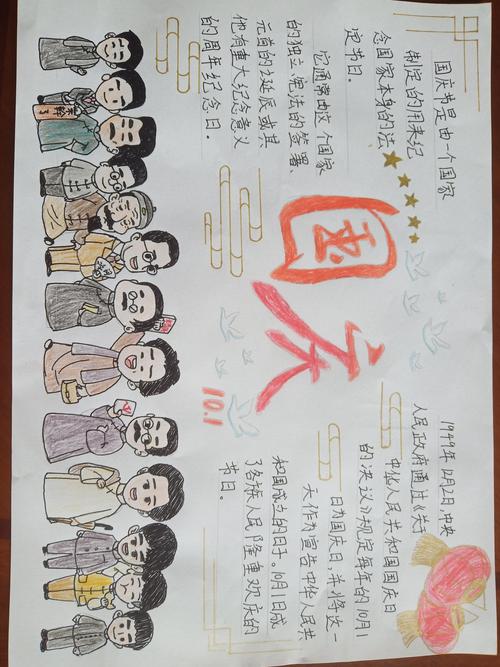 国庆
10.1
国庆节是由一个国家
制定的用来纪
念国家本身的法
定节日。
它通常由这个国家
的独立、宪法的签署、
元首的诞辰或其
他有重大纪念意义
的周年纪念日。
1949年12月2日,中央
人民政府通过《关于
中华人民共和国国庆日
的决议》规定每年的10月1
日为国庆日,并将这一
天作为宣告中华人民共
和国成立的日子。10月1日成
了各族人民隆重欢庆的
节日。